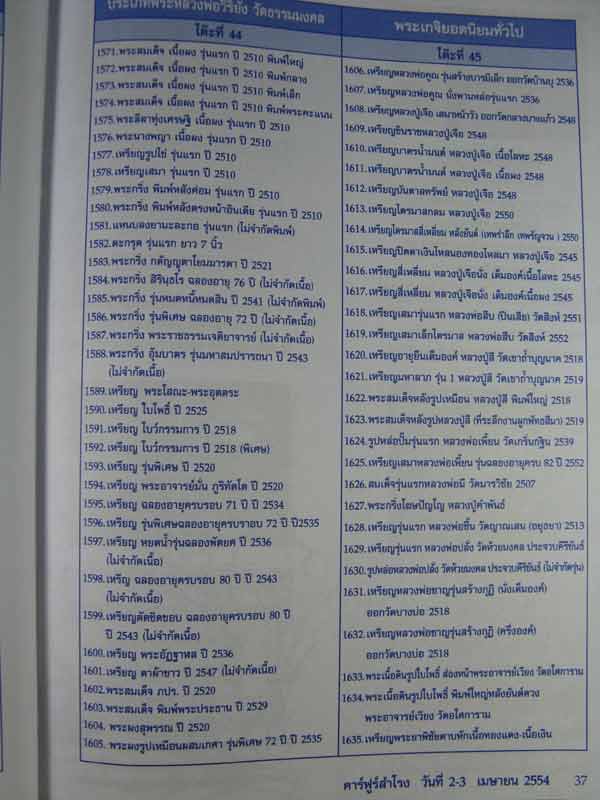 ประเภทพระหลวงพ่อวิริยัง วัดธรรมมงคล
โต๊ะที่ 44
1571.พระสมเด็จ เนื้อผง รุ่นแรก ปี 2510 พิมพ์ใหญ่
1572.พระสมเด็จ เนื้อผง รุ่นแรก ปี 2510 พิมพ์กลาง
1573.พระสมเด็จ เนื้อผง รุ่นแรก ปี 2510 พิมพ์เล็ก
1574.พระสมเด็จ เนื้อผง รุ่นแรก ปี 2510 พิมพ์พระคะแนน
1575.พระลีลาทุ่งเศรษฐี เนื้อผง รุ่นแรก ปี 2510
1576.พระนางพญา เนื้อผง รุ่นแรก ปี 2510
1577.เหรียญรูปไข่ รุ่นแรก ปี 2510
1578.เหรียญเสมา รุ่นแรก ปี 2510
1579.พระกริ่ง พิมพ์หลังค่อม รุ่นแรก ปี 2510
1580.พระกริ่ง พิมพ์หลังตรงหน้าอินเดีย รุ่นแรก ปี 2510
1581.แหนบลงยามะละกอ รุ่นแรก (ไม่จำกัดพิมพ์)
1582.ตะกรุด รุ่นแรก ยาว 7 นิ้ว
1583.พระกริ่ง กตัญญูตาโยมมารดา ปี 2521
1584.พระกริ่ง สิรินธโร ฉลองอายุ 76 ปี (ไม่จำกัดเนื้อ)
1585.พระกริ่ง รุ่นหมดหนี้หมดสิน ปี 2541 (ไม่จำกัดพิมพ์)
1586.พระกริ่ง รุ่นพิเศษ ฉลองอายุ 72 ปี (ไม่จำกัดเนื้อ)
1587.พระกริ่ง พระราชธรรมเจติยาจารย์ (ไม่จำกัดเนื้อ)
1588.พระกริ่ง อุ้มบาตร รุ่นมหาสมปรารถนา ปี 2543
(ไม่จำกัดเนื้อ)
1589.เหรียญ พระโสณะ-พระอุตตระ
1590.เหรียญ ใบโพธิ์ ปี 2525
1591.เหรียญ โบว์กรรมการ ปี 2518
1592.เหรียญ โบว์กรรมการ ปี 2518 (พิเศษ)
1593.เหรียญ รุ่นพิเศษ ปี 2520
1594.เหรียญ พระอาจารย์มั่น ภูริทัตโต ปี 2520
1595.เหรียญ ฉลองอายุครบรอบ 71 ปี ปี 2534
1596.เหรียญ รุ่นพิเศษฉลองอายุครบรอบ 72 ปี ปี2535
1597.เหรียญ หยดน้ำรุ่นฉลองพัดยศ ปี 2536
(ไม่จำกัดเนื้อ)
1598.เหรียญ ฉลองอายุครบรอบ 80 ปี ปี 2543
(ไม่จำกัดเนื้อ)
1599.เหรียญตัดชิดขอบ ฉลองอายุครบรอบ 80 ปี
ปี 2543 (ไม่จำกัดเนื้อ)
1600.เหรียญ พระอัฏฐาพล ปี 2536
1601.เหรียญ ตาผ้าขาว ปี 2547 (ไม่จำกัดเนื้อ)
1602.พระสมเด็จ ภปร. ปี 2520
1603.พระสมเด็จ พิมพ์พระประธาน ปี 2529
1604. พระผงสุพรรณ ปี 2520
1605. พระผงรูปเหมือนผสมเกศา รุ่นพิเศษ 72 ปี ปี 2535
พระเกจิยอดนิยมทั่วไป
โต๊ะที่ 45
1606.เหรียญหลวงพ่อคูณ รุ่นสร้างบารมีเล็ก ออกวัดบ้านบุ 2536
1607.เหรียญหลวงพ่อคูณ นั่งพานหล่อรุ่นแรก 2536
1608.เหรียญหลวงปู่เจือ เสมาหน้าวัว ออกวัดกลางบางแก้ว 2548
1609.เหรียญชินราชหลวงปู่เจือ 2548
1610.เหรียญบาตรน้ำมนต์ หลวงปู่เจือ เนื้อโลหะ 2548
1611.เหรียญบาตรน้ำมนต์ หลวงปู่เจือ เนื้อผง 2548
1612.เหรียญบันดาลทรัพย์ หลวงปู่เจือ 2548
1613.เหรียญไตรมาสกลม หลวงปู่เจือ 2550
1614.เหรียญไตรมาสสี่เหลี่ยม หลังยันต์ (เทพรำลึก เทพรัญจวน ) 2550
1615.เหรียญปิดตาเงินไหลนองทองไหลมา หลวงปู่เจือ 2545
1616.เหรียญสี่เหลี่ยม หลวงปู่เจือนั่ง เต็มองค์เนื้อโลหะ 2545
1617.เหรียญสี่เหลี่ยม หลวงปู่เจือนั่ง เต็มองค์เนื้อผง 2545
1618.เหรียญเสมารุ่นแรก หลวงพ่อสืบ (ปืนเสีย) วัดสิงห์ 2551
1619.เหรียญเสมาเล็กไตรมาส หลวงพ่อสืบ วัดสิงห์ 2552
1620.เหรียญอายุยืนเต็มองค์ หลวงปู่สี วัดเขาถ้ำบุญนาค 2518
1621.เหรียญมหาลาภ รุ่น 1 หลวงปู่สี วัดเขาถ้ำบุญนาค 2519
1622.พระสมเด็จหลังรูปเหมือน หลวงปู่สี พิมพ์ใหญ่ 2518
1623.พระสมเด็จหลังรูปหลวงปู่สี (ที่ระลึกงานผูกพัทธสีมา) 2519
1624.รูปหล่อปั๊มรุ่นแรก หลวงพ่อเพี้ยน วัดเกริ่นกฐิน 2539
1625.เหรียญเสมาหลวงพ่อเพี้ยน รุ่นฉลองอายุครบ 82 ปี 2552
1626.สมเด็จรุ่นแรกหลวงพ่อมี วัดมารวิชัย 2507
1627.พระกริ่งโฆษปัญโญ หลวงปู่คำพันธ์
1628.เหรียญรุ่นแรก หลวงพ่อชื้น วัดญาณเสน (อยุธยา) 2513
1629.เหรียญรุ่นแรก หลวงพ่อปลั่ง วัดห้วยมงคล ประจวบคีรีขันธ์
1630.รูปหล่อหลวงพ่อปลั่ง วัดห้วยมงคล ประจวบคีรีขันธ์ (ไม่จำกัดรุ่น)
1631.เหรียญหลวงพ่อชาญรุ่นสร้างกุฏิ (นั่งเต็มองค์)
ออกวัดบางบ่อ 2518
1632.เหรียญหลวงพ่อชาญรุ่นสร้างกุฏิ (ครึ่งองค์)
ออกวัดบางบ่อ 2518
1633.พระเนื้อดินรูปใบโพธิ์ ส่องหน้าพระอาจารย์เวียง วัดอโศการาม
1634.พระเนื้อดินรูปใบโพธิ์ พิมพ์ใหญ่หลังยันต์ดวง
พระอาจารย์เวียง วัดอโศการาม
1635.เหรียญพระยาพิชัยดาบหักเนื้อทองแดง-เนื้อเงิน
คาร์ฟูร์สำโรง วันที่ 2-3 เมษายน 2554 37